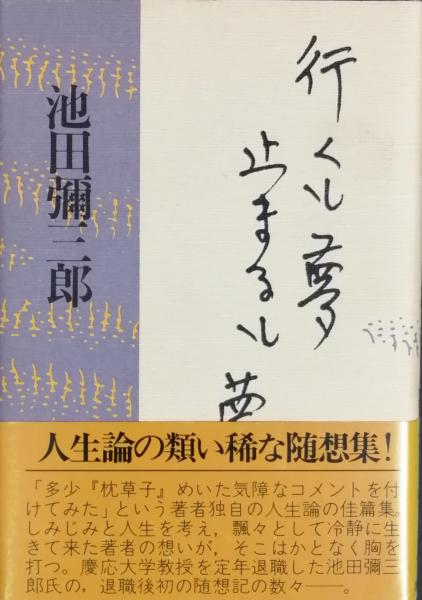 行くも夢
止まるも夢
池田彌三郎
人生論の類い稀な随想集!
「多少『枕草子』めいた気障なコメントを付
けてみた」という著者独自の人生論の佳篇集。
しみじみと人生を考え，飄々として冷静に生
きて来た著者の想いが，そこはかとなく胸を
打つ。慶応大学教授を定年退職した池田彌三
郎氏の，退職後初の随想記の数々――。